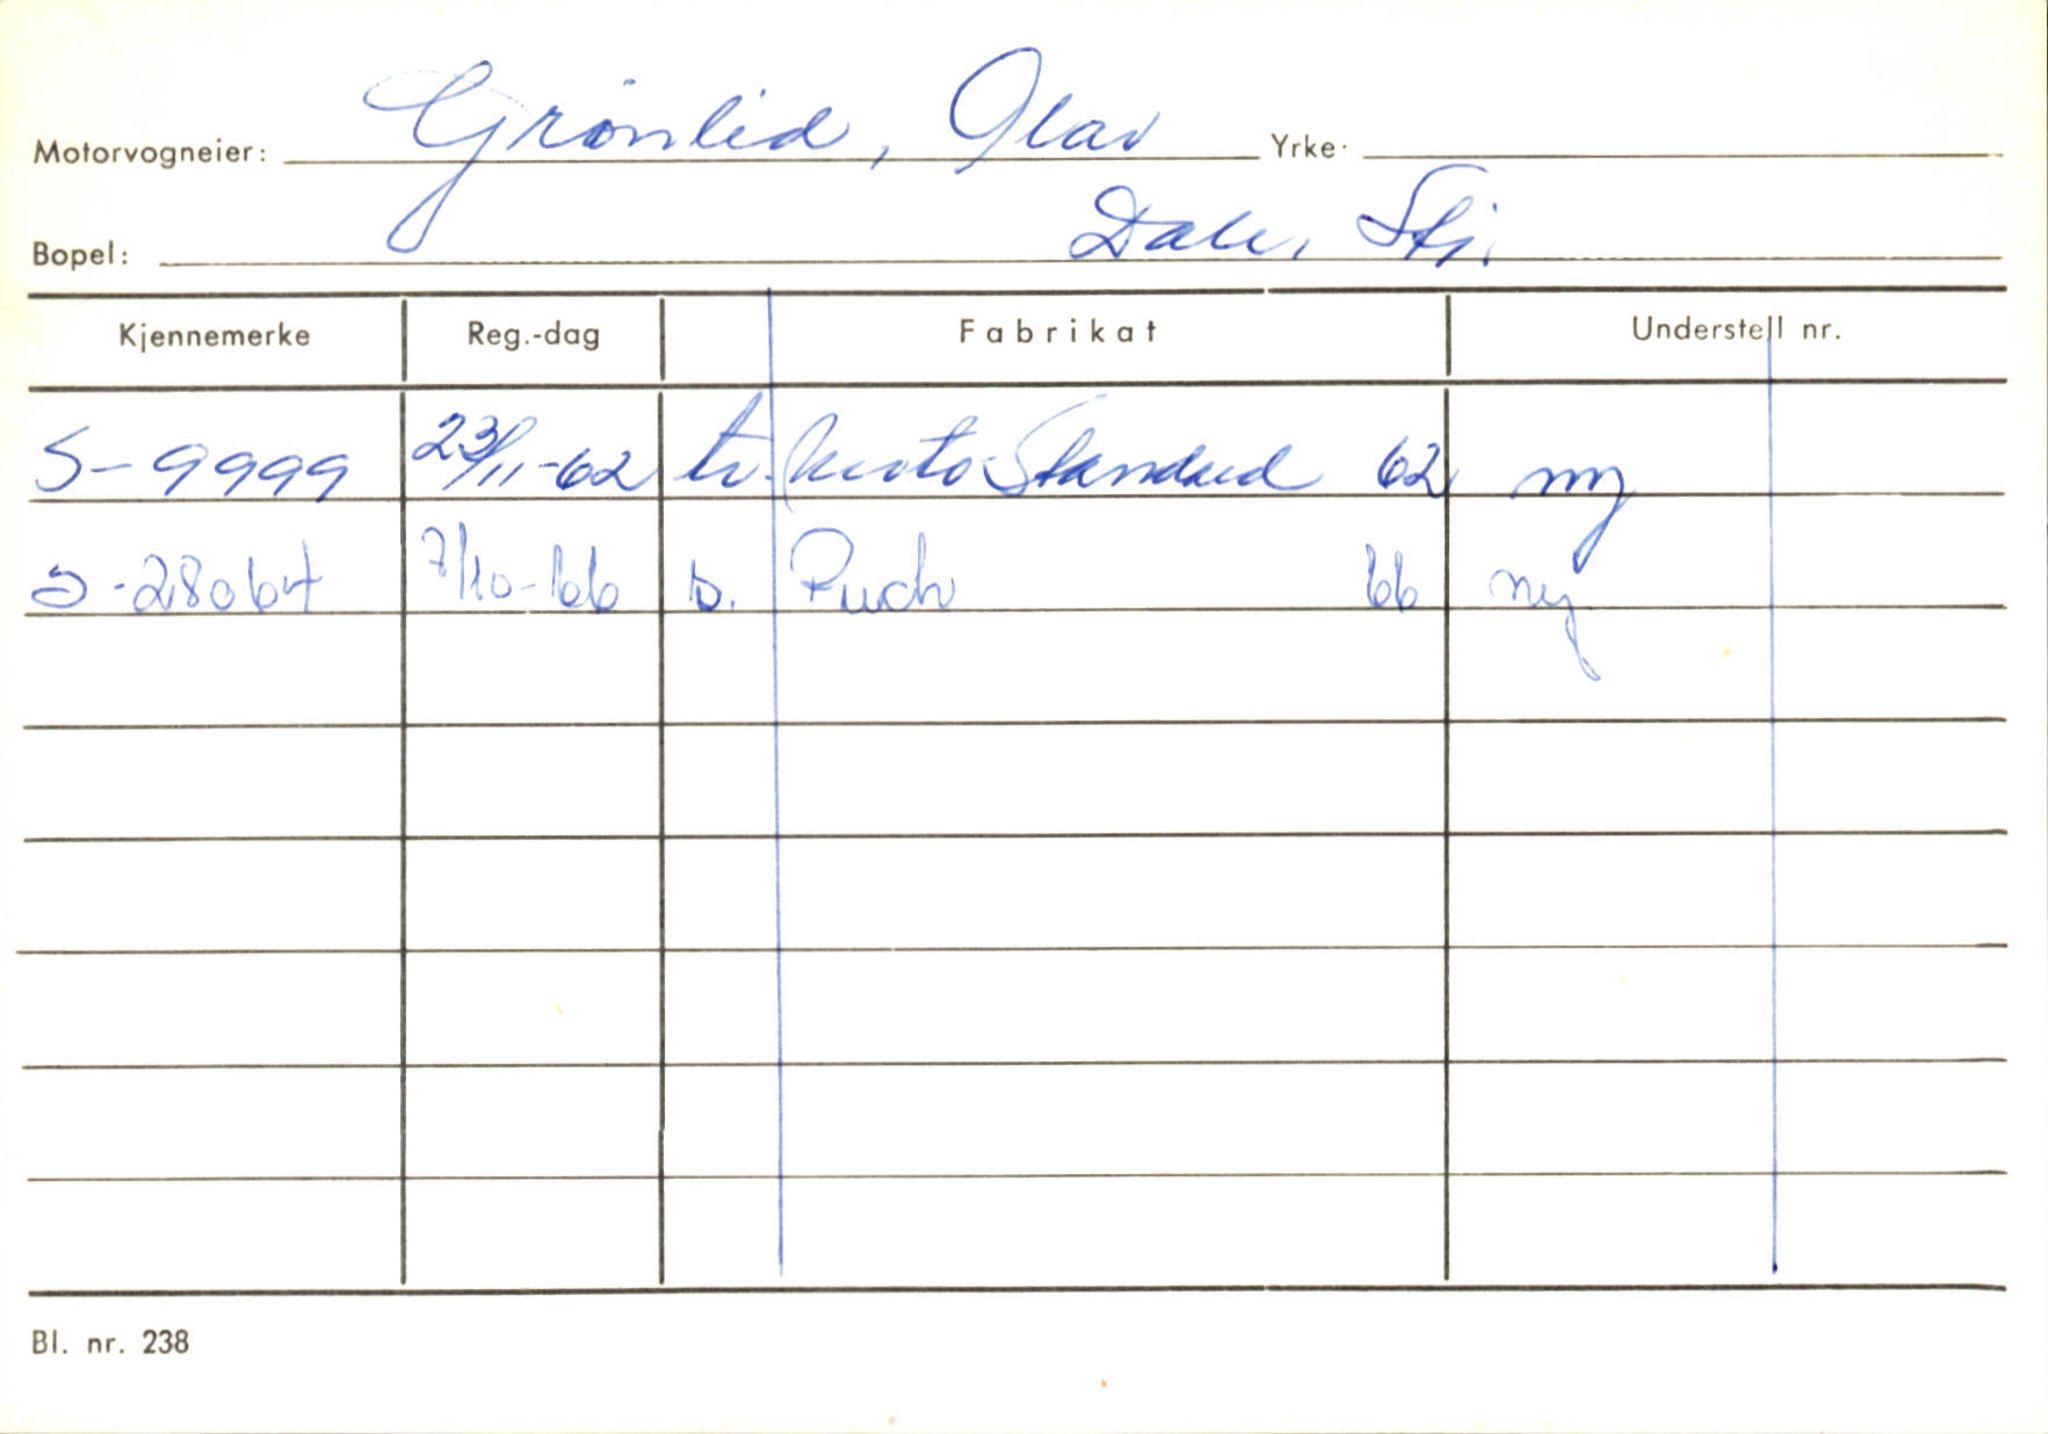 Motorvogneier: Grønlid, Olav Yrke:
Bopel: Dale, Sfj.
Kjennemerke Reg.-dag Fabrikat Understell nr.
S-9999 23/11-62 tr. Standard 62 ny
S-28064 7/10-66 b. Puch 66 ny
Bl. nr. 238